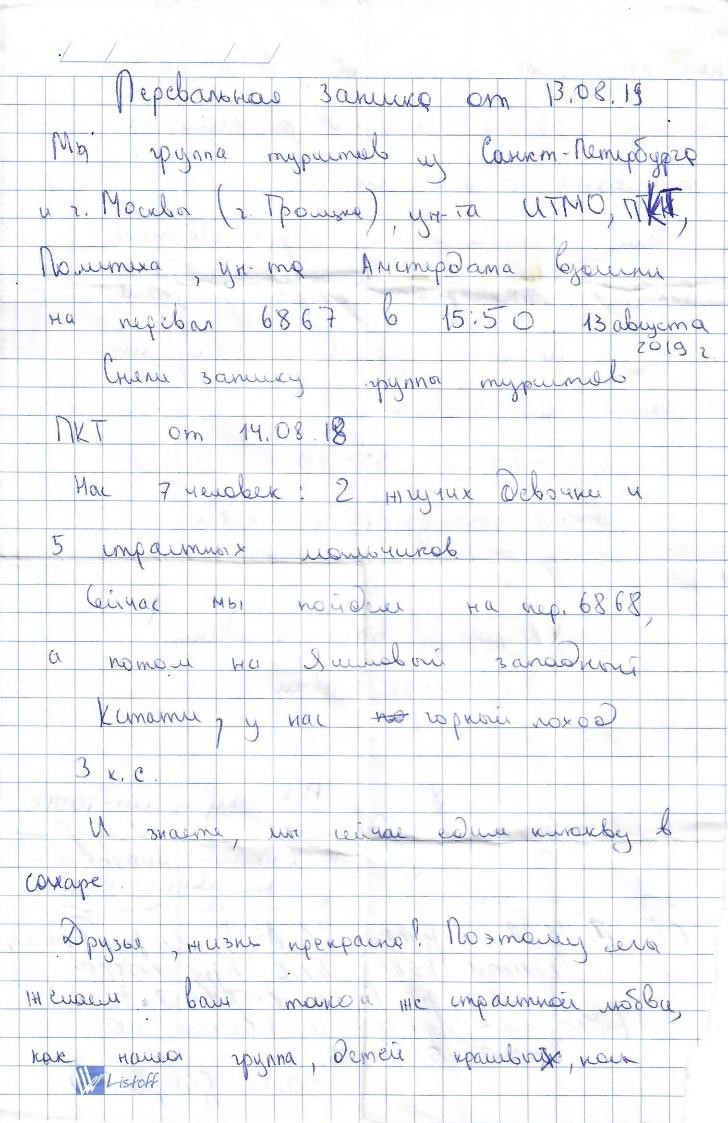 Перевальная записка от 13.08.19
Мы группа туристов из Санкт-Петербурга
и г. Москвы (г. Троицка), ун-та ИТМО, ПКТ,
Политеха, ун-та Амстердама взошли
на перевал 6867 в 15:50 13 августа
2019 г.
Сняли записку группы туристов
ПКТ от 14.08.18
Нас 7 человек: 2 жгучих девочки и
5 страстных мальчиков
Сейчас мы пойдем на пер. 6868,
а потом на Яшмовый западный
Кстати, у нас горный поход
3 к.с.
И знаете, мы сейчас едим клюкву в
сахаре
Друзья, жизнь прекрасна! Поэтому мы
желаем вам такой же страстной любви,
как наша группа, детей красивых, как
Listoff